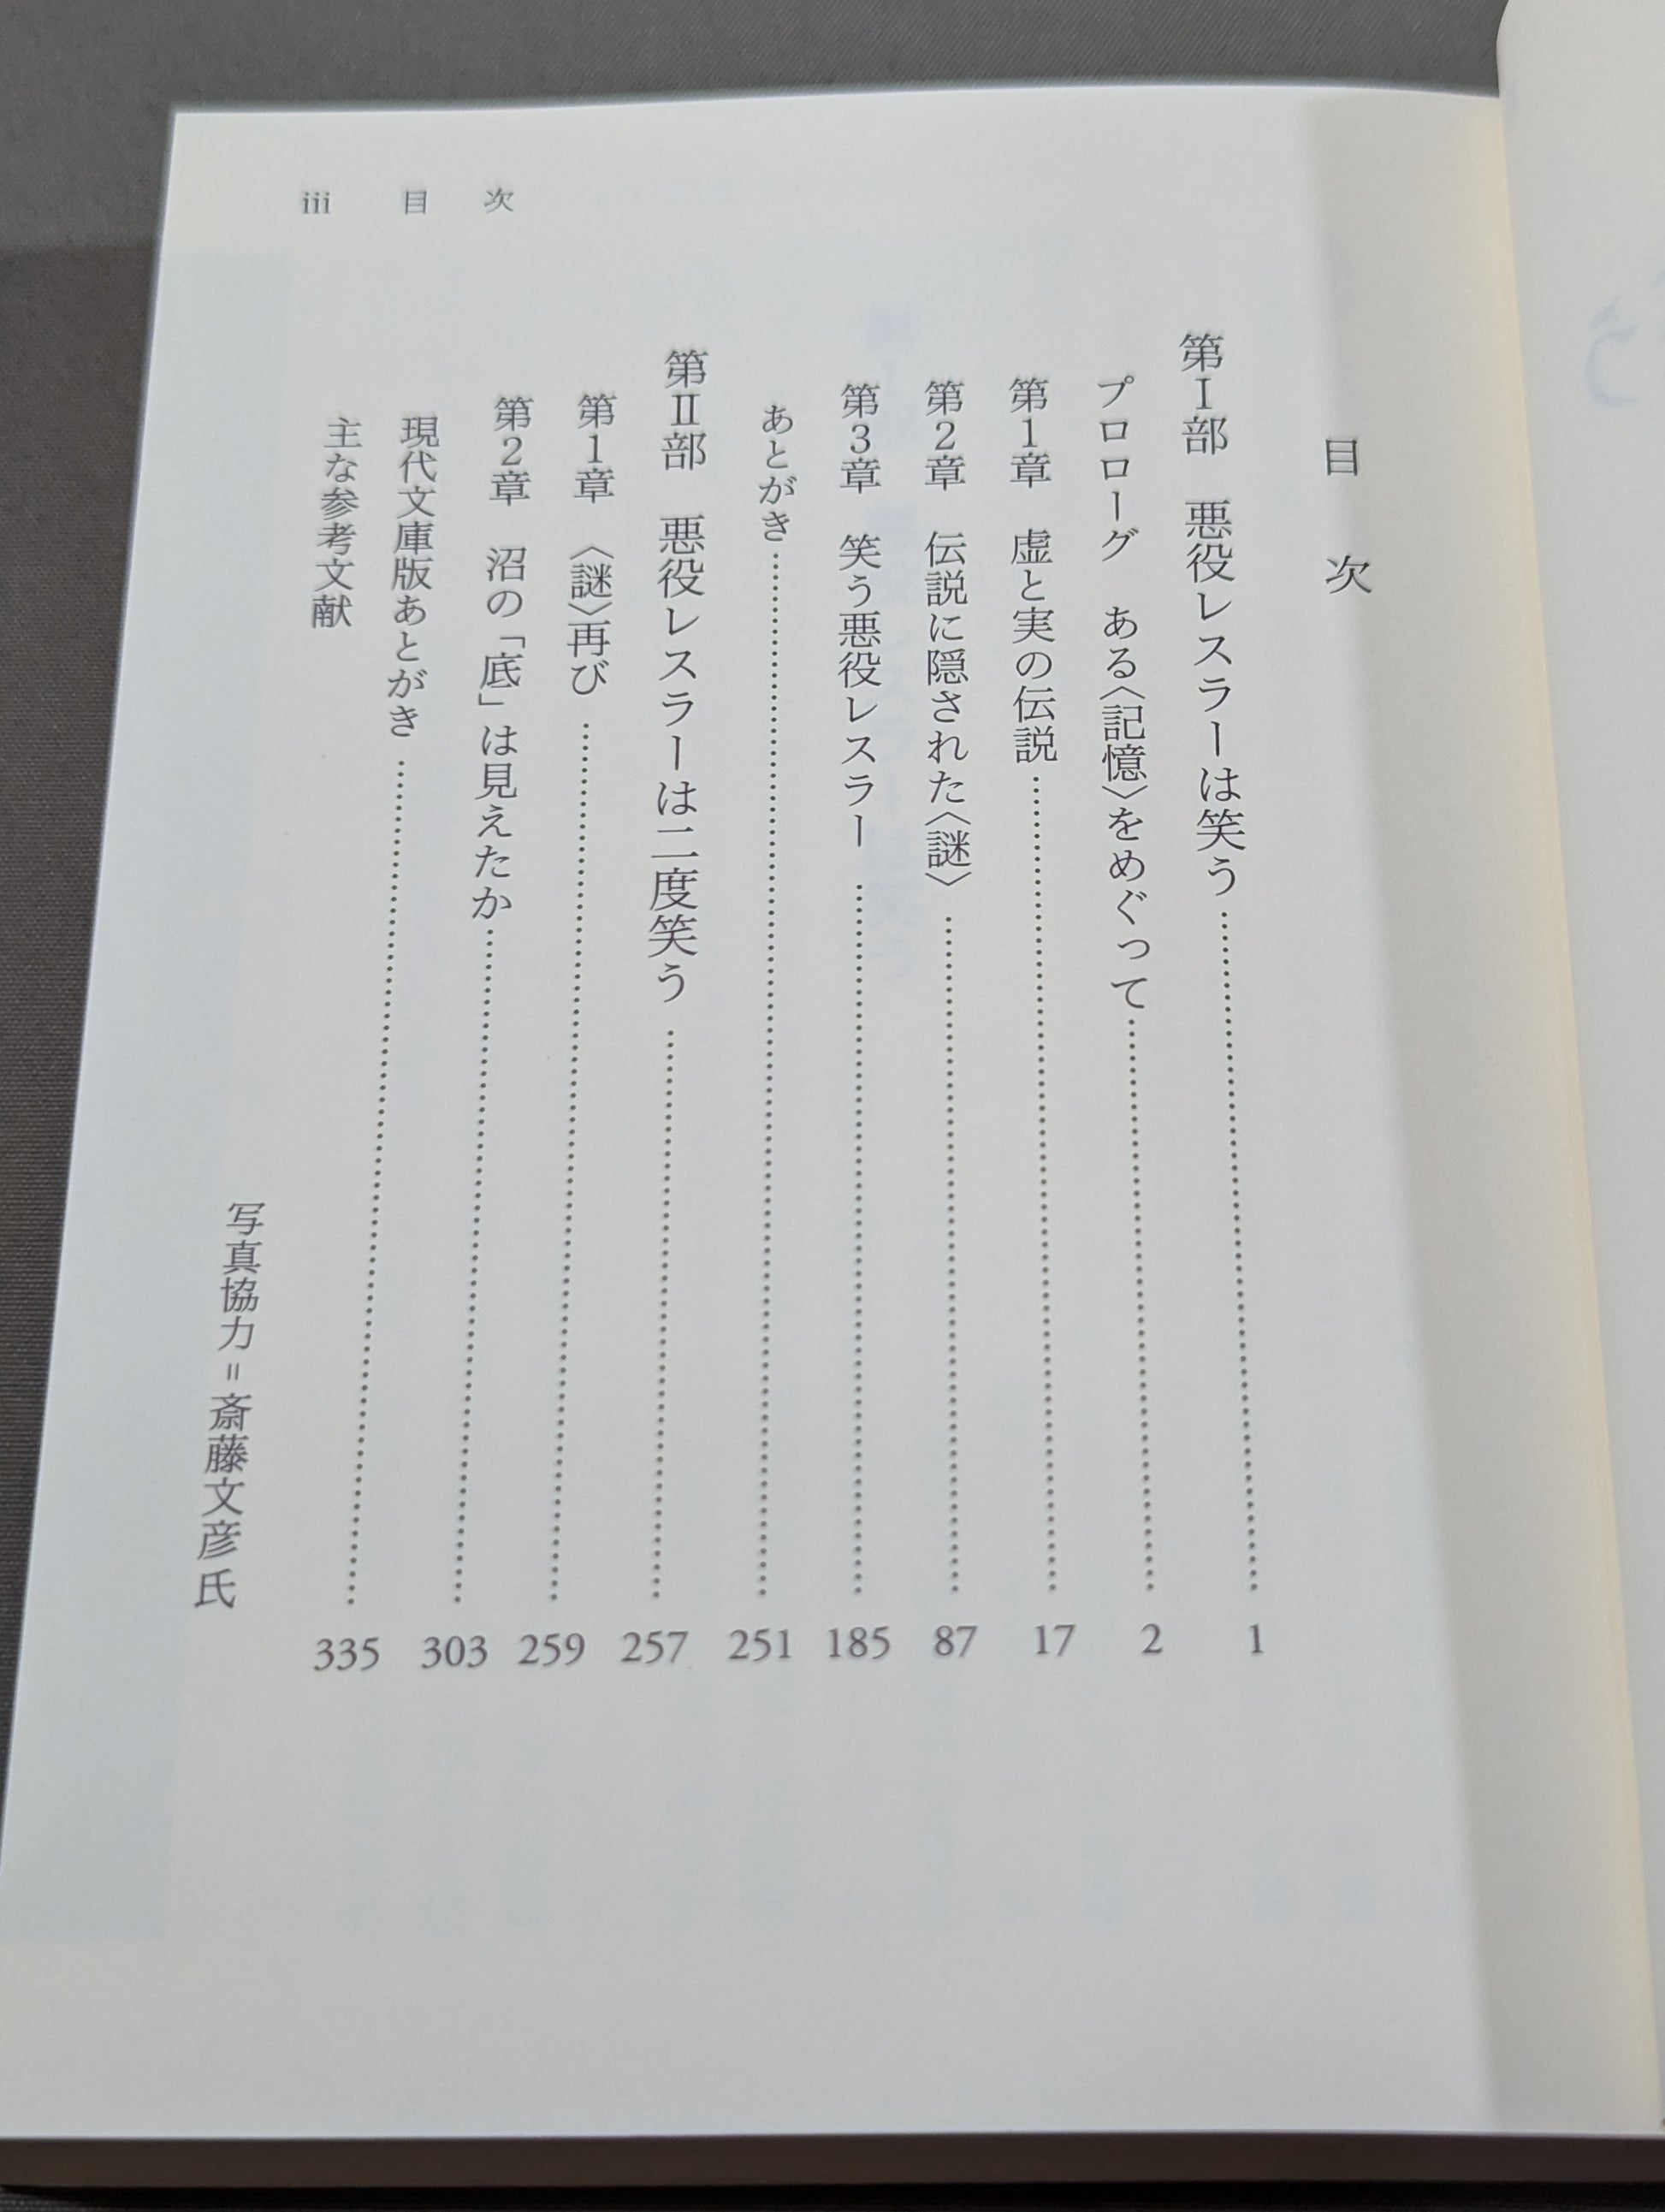 iii 目次
目次
第Ⅰ部 悪役レスラーは笑う……1
プロローグ ある〈記憶〉をめぐって……2
第1章 虚と実の伝説……17
第2章 伝説に隠された〈謎〉……87
第3章 笑う悪役レスラー……185
あとがき……251
第Ⅱ部 悪役レスラーは二度笑う……257
第1章 〈謎〉再び……259
第2章 沼の「底」は見えたか……303
現代文庫版あとがき……335
主な参考文献
写真協力＝斎藤文彦氏